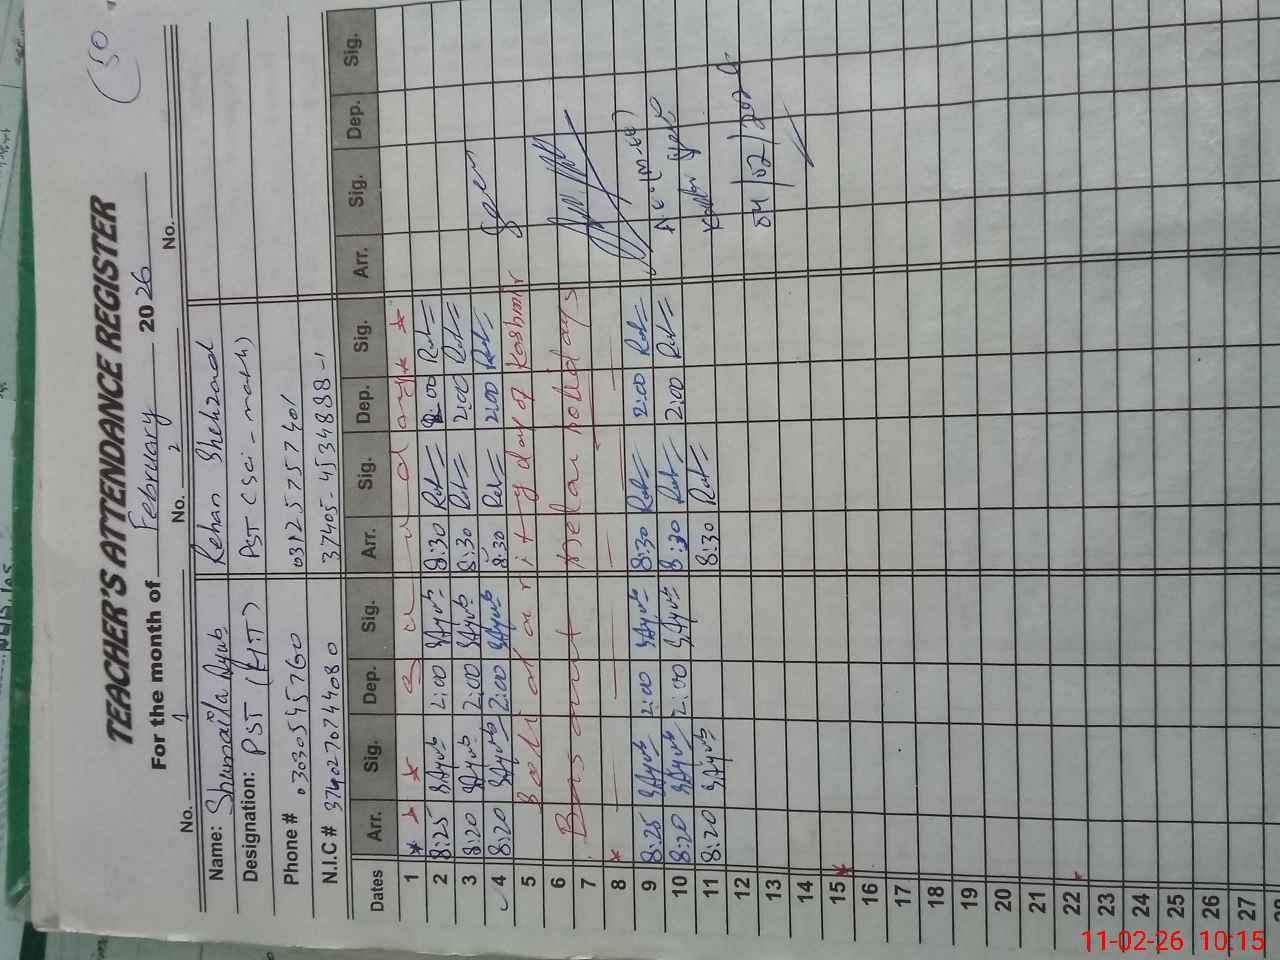 50
TEACHER'S ATTENDANCE REGISTER
For the month of February 2026
No. 1 No. 2 No.
Name: Shumaila Ayub Rehan Shehzad
Designation: PST (EHT) PST (Sci-math)
Phone # 03030545760 03125757401
N.I.C # 3740276744080 37405-4534888-1
Dates Arr. Sig. Dep. Sig. Arr. Sig. Dep. Sig. Arr. Sig. Dep. Sig.
1 * * * S u n d a y * *
2 8:25 SAyub 2:00 SAyub 8:30 2:00
3 8:20 SAyub 2:00 SAyub 8:30 2:00
4 8:20 SAyub 2:00 SAyub 8:30 2:00
5 Solidarity day of Kashmir
6 Basant holidays
7
8 *
9 8:25 SAyub 2:00 SAyub 8:30 2:00
10 8:20 SAyub 2:00 SAyub 8:30 2:00
11 8:20 SAyub 8:30
04/02/2026
12
13
14
15 *
16
17
18
19
20
21
22
23
24
25
26
27
28
11-02-26 10:15